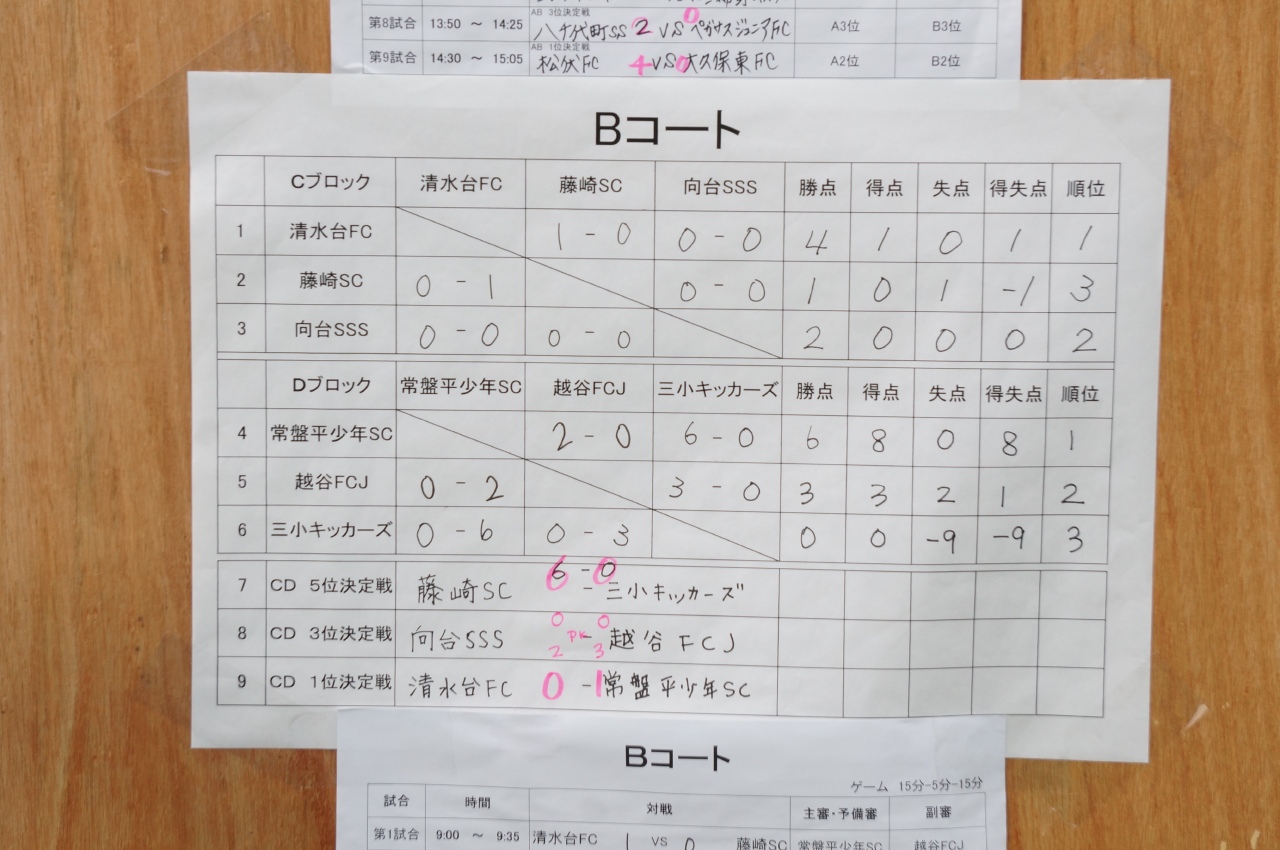 第8試合 13:50 ～ 14:25 AB 3位決定戦 八千代町SS 2 VS 0 ペガサスジュニアFC A3位 B3位
第9試合 14:30 ～ 15:05 AB 1位決定戦 松伏FC 4 VS 0 大久保東FC A2位 B2位
Bコート
Cブロック 清水台FC 藤崎SC 向台SSS 勝点 得点 失点 得失点 順位
1 清水台FC 1 - 0 0 - 0 4 1 0 1 1
2 藤崎SC 0 - 1 0 - 0 1 0 1 -1 3
3 向台SSS 0 - 0 0 - 0 2 0 0 0 2
Dブロック 常盤平少年SC 越谷FCJ 三小キッカーズ 勝点 得点 失点 得失点 順位
4 常盤平少年SC 2 - 0 6 - 0 6 8 0 8 1
5 越谷FCJ 0 - 2 3 - 0 3 3 2 1 2
6 三小キッカーズ 0 - 6 0 - 3 0 0 -9 -9 3
7 CD 5位決定戦 藤崎SC 6 - 0 - 三小キッカーズ
8 CD 3位決定戦 向台SSS 0 - 0 2 PK 3 越谷FCJ
9 CD 1位決定戦 清水台FC 0 - 1 常盤平少年SC
Bコート
ゲーム 15分-5分-15分
試合 時間 対戦 主審・予備審 副審
第1試合 9:00 ～ 9:35 清水台FC 1 VS 0 藤崎SC 常盤平少年SC 越谷FCJ